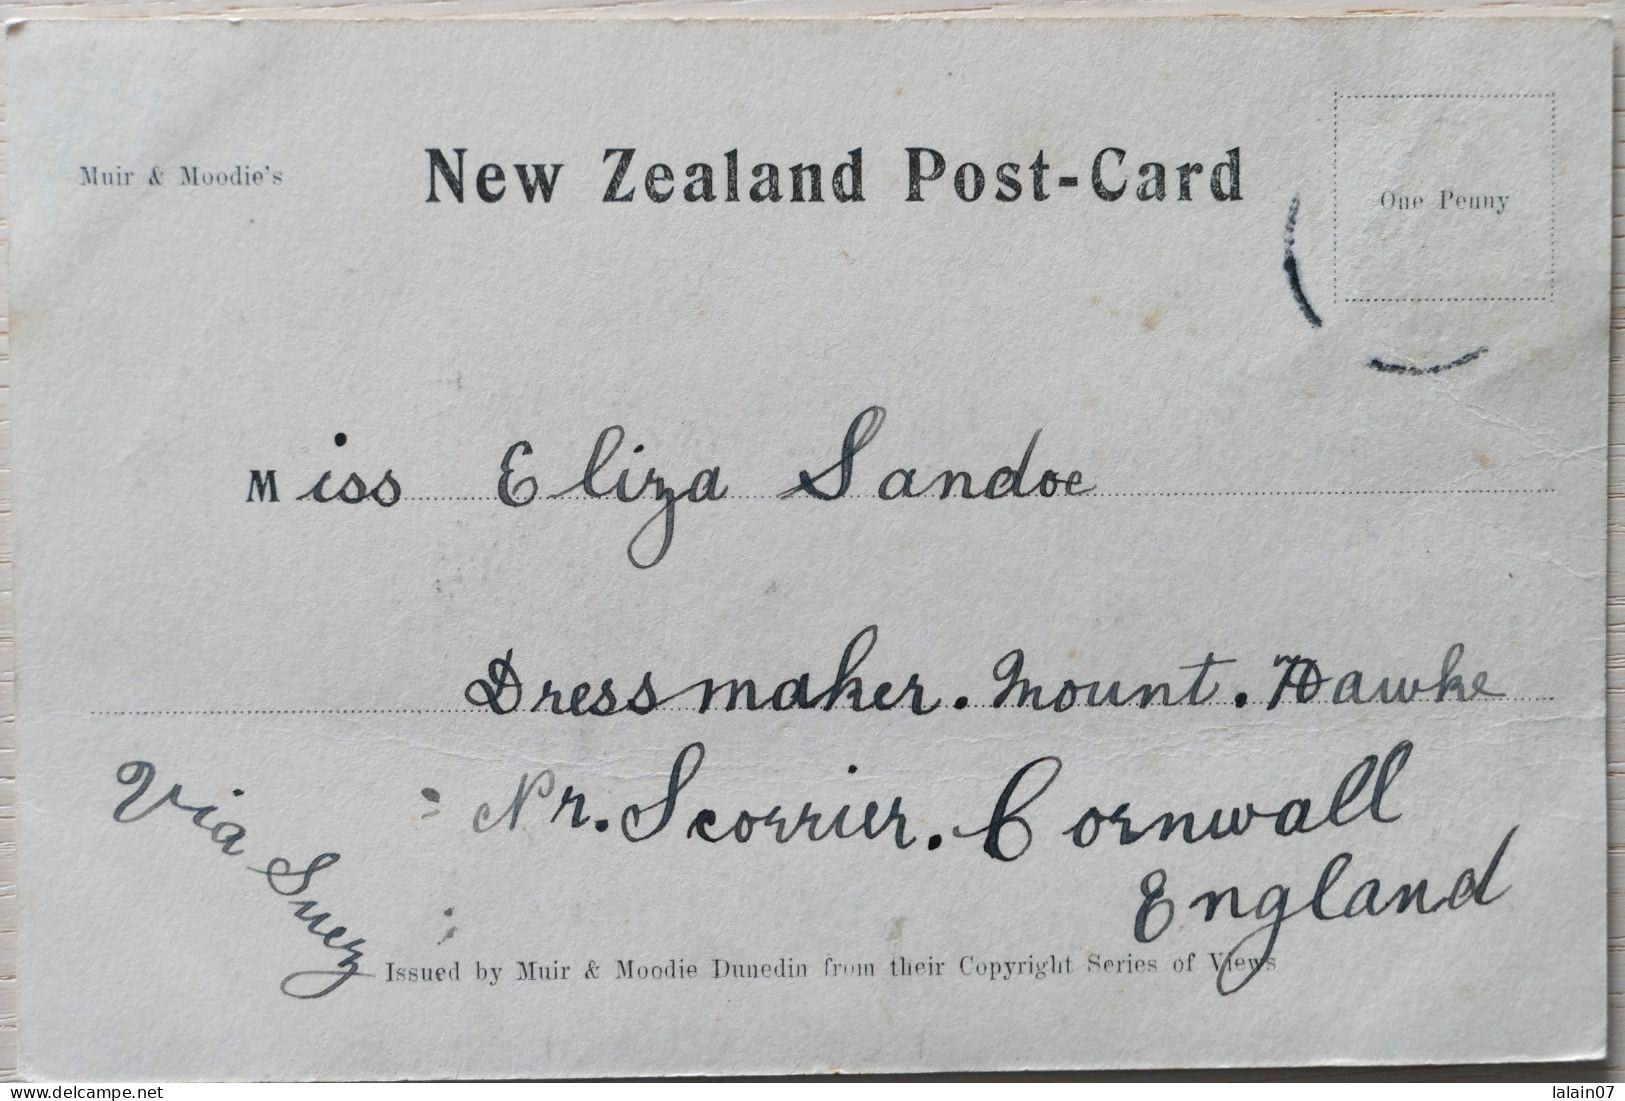 Muir & Moodie's
New Zealand Post-Card
One Penny
Miss Eliza Sandoe
Dressmaker. Mount. Hawke
Nr. Scorrier. Cornwall
England
Via Suez
Issued by Muir & Moodie Dunedin from their Copyright Series of Views
delcampe.net
lalain07